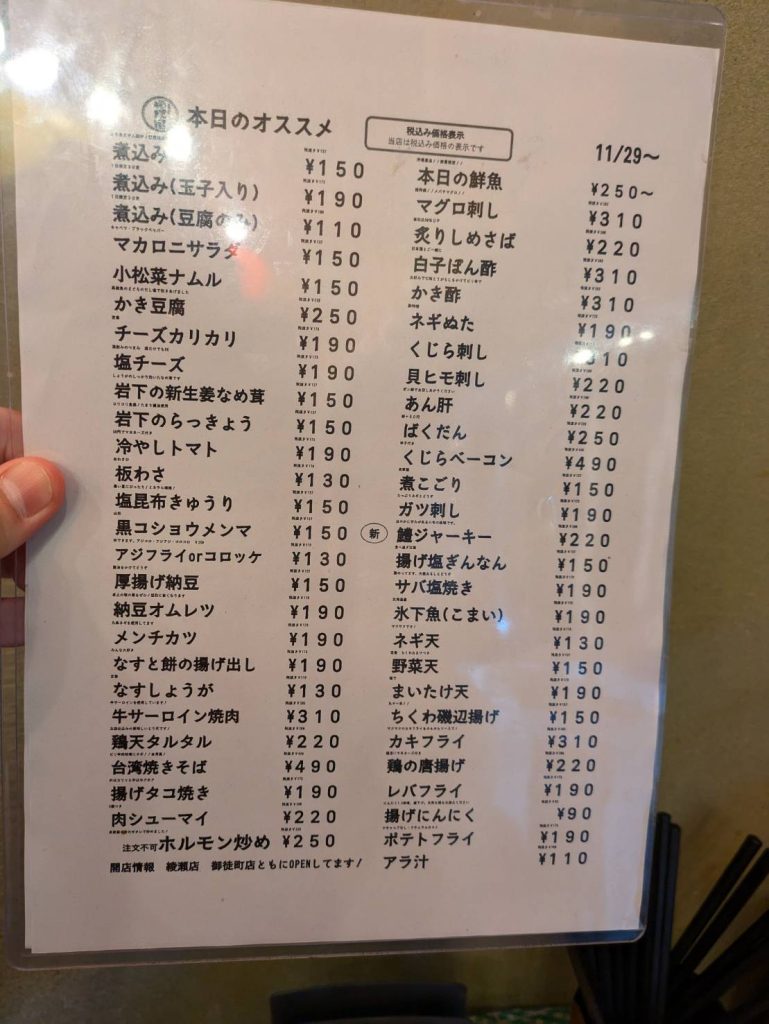 本日のオススメ
税込み価格表示
当店は税込み価格の表示です
11/29～
煮込み ¥150
煮込み(玉子入り) ¥190
煮込み(豆腐のみ) ¥110
マカロニサラダ ¥150
小松菜ナムル ¥150
かき豆腐 ¥250
チーズカリカリ ¥190
塩チーズ ¥190
岩下の新生姜なめ茸 ¥150
岩下のらっきょう ¥150
冷やしトマト ¥190
板わさ ¥130
塩昆布きゅうり ¥150
黒コショウメンマ ¥150
アジフライorコロッケ ¥130
厚揚げ納豆 ¥150
納豆オムレツ ¥190
メンチカツ ¥190
なすと餅の揚げ出し ¥190
なすしょうが ¥130
牛サーロイン焼肉 ¥310
鶏天タルタル ¥220
台湾焼きそば ¥490
揚げタコ焼き ¥190
肉シューマイ ¥220
注文不可ホルモン炒め ¥250
開店情報 綾瀬店 御徒町店ともにOPENしてます!
本日の鮮魚 ¥250～
マグロ刺し ¥310
炙りしめさば ¥220
白子ぽん酢 ¥310
かき酢 ¥310
ネギぬた ¥190
くじら刺し ¥310
貝ヒモ刺し ¥220
あん肝 ¥220
ばくだん ¥250
くじらベーコン ¥490
煮こごり ¥150
ガツ刺し ¥190
新 鱧ジャーキー ¥220
揚げ塩ぎんなん ¥150
サバ塩焼き ¥190
氷下魚(こまい) ¥190
ネギ天 ¥130
野菜天 ¥150
まいたけ天 ¥190
ちくわ磯辺揚げ ¥150
カキフライ ¥310
鶏の唐揚げ ¥220
レバフライ ¥190
揚げにんにく ¥90
ポテトフライ ¥190
アラ汁 ¥110